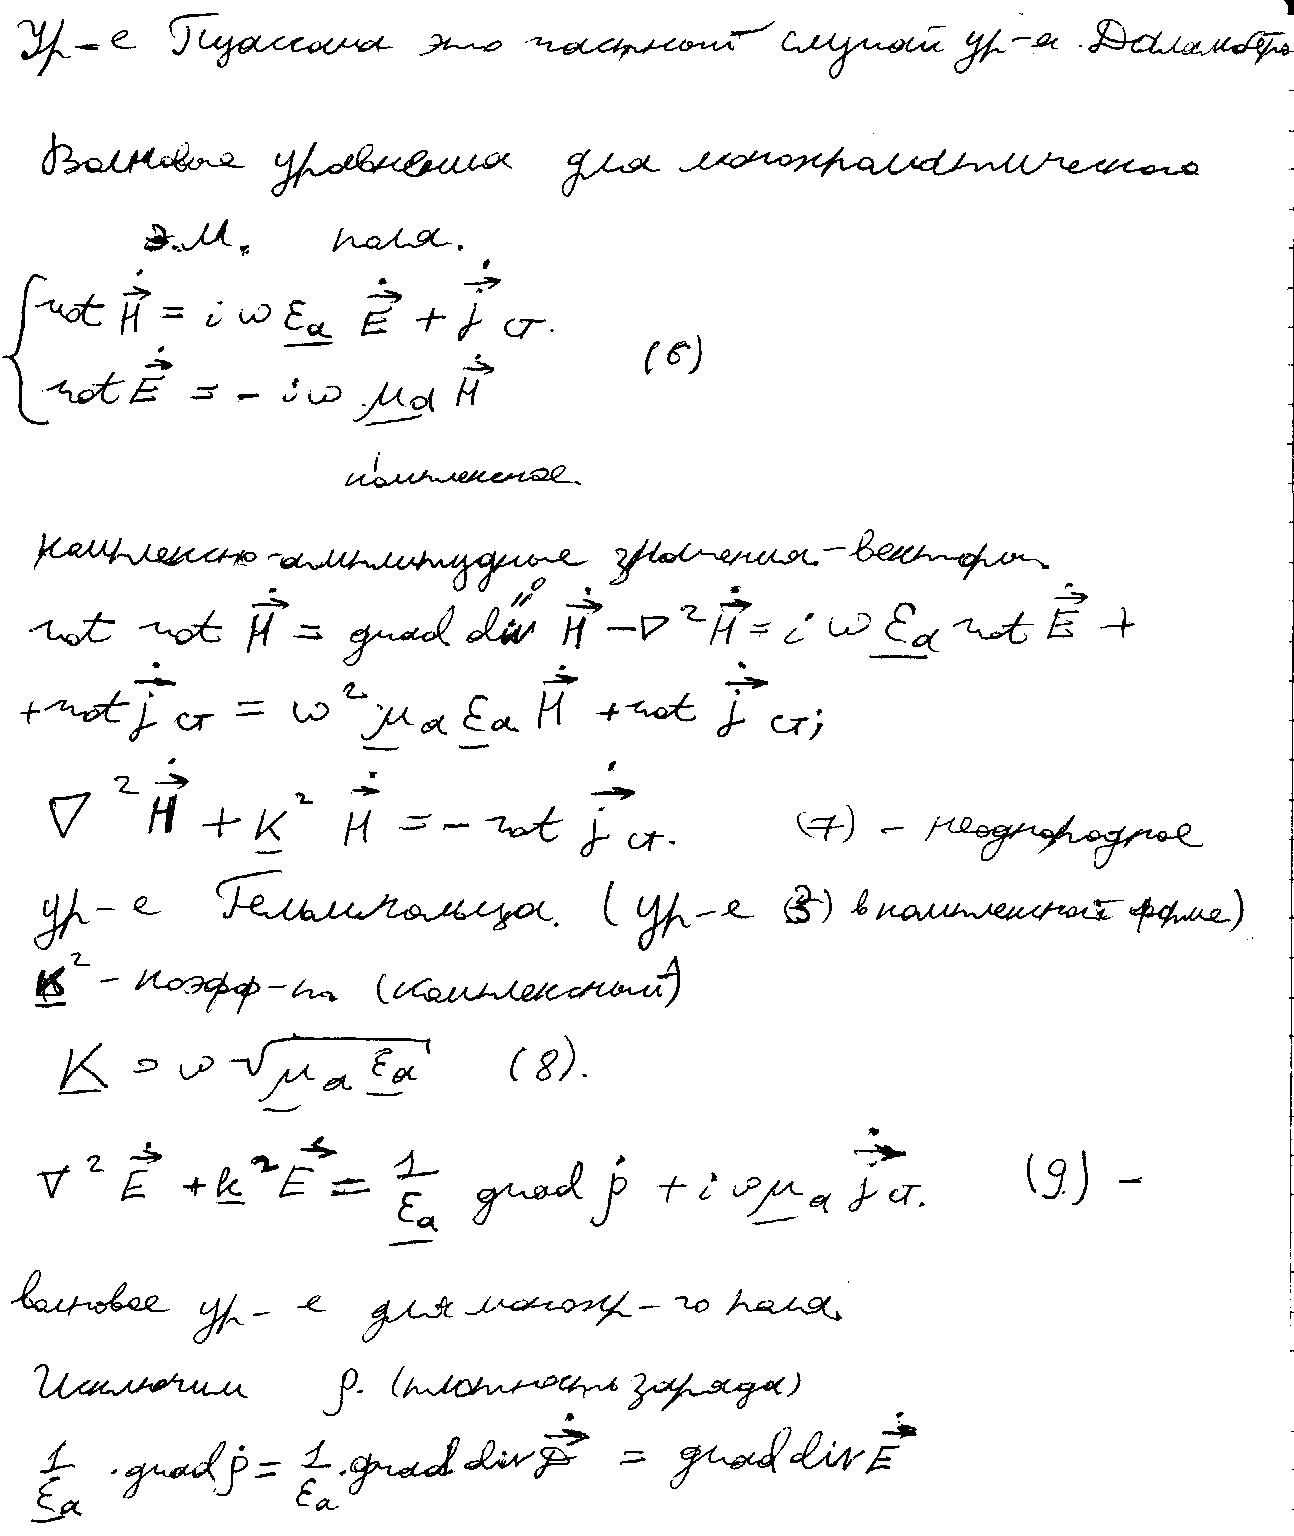 Ур-е Пуассона это частный случай ур-я Даламбера
Волновые уравнения для монохроматического
э.м. поля.
rot H⃗̇ = iω ε̲ₐ E⃗̇ + j⃗̇ ст.
rot E⃗̇ = - iω μ̲ₐ H⃗̇ (6)
комплексное.
комплексно-амплитудные значения векторов.
rot rot H⃗̇ = grad div H⃗̇ - ∇² H⃗̇ = iω ε̲ₐ rot E⃗̇ +
+ rot j⃗̇ ст = ω² μ̲ₐ ε̲ₐ H⃗̇ + rot j⃗̇ ст;
∇² H⃗̇ + K̲² H⃗̇ = - rot j⃗̇ ст. (7) - неоднородное
ур-е Гельмгольца. (ур-е (3) в комплексной форме)
K̲² - коэфф-т (комплексный)
K̲ = ω √(μ̲ₐ ε̲ₐ) (8).
∇² E⃗̇ + k̲² E⃗̇ = 1/ε̲ₐ grad ρ̇ + iω μ̲ₐ j⃗̇ ст. (9) -
волновое ур-е для монохр-го поля.
Исключим ρ. (плотность заряда)
1/ε̲ₐ · grad ρ̇ = 1/εₐ · grad div D⃗̇ = grad div E⃗̇